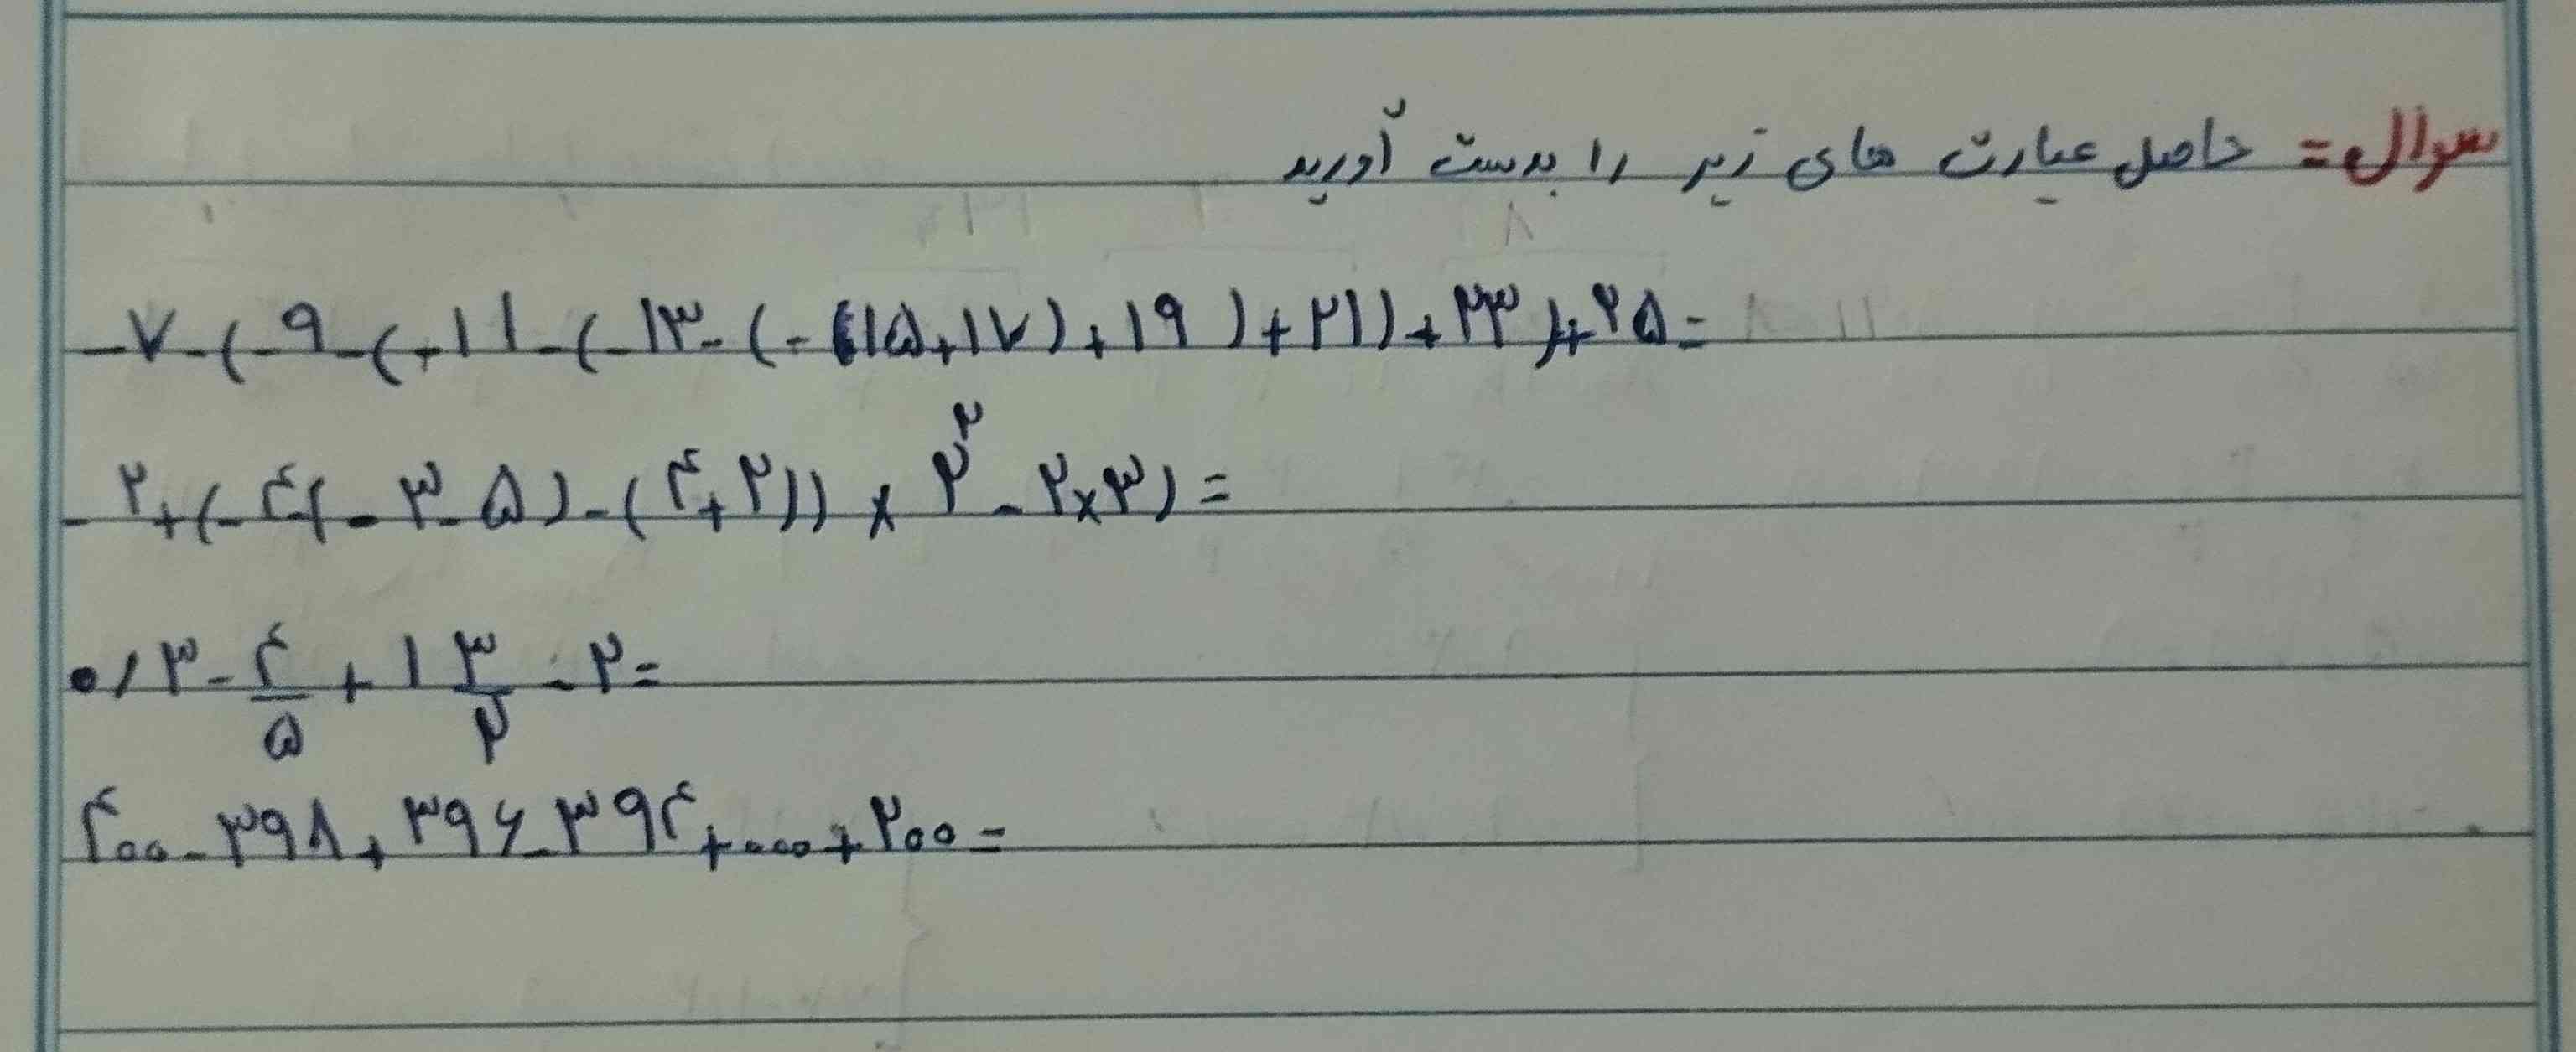 سوال = حاصل عبارت های زیر را بدست آورید
-۷-(-۹-(-۱۱-(-۱۳-(-(۱۵+۱۷)+۱۹)+۲۱)+۲۳)+۲۵=
-۲+(-۴(-۳-۵)-(۴+۲))×۲^۲-۲×۳)=
۰/۳-۴/۵+۱ ۳/۲-۲=
۴۰۰-۳۹۸+۳۹۶-۳۹۴+....+۲۰۰=